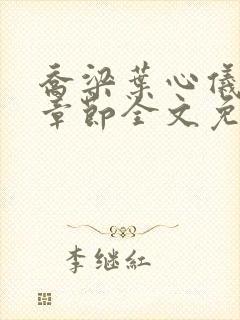 乔梁叶心仪
章节全文免
李继红